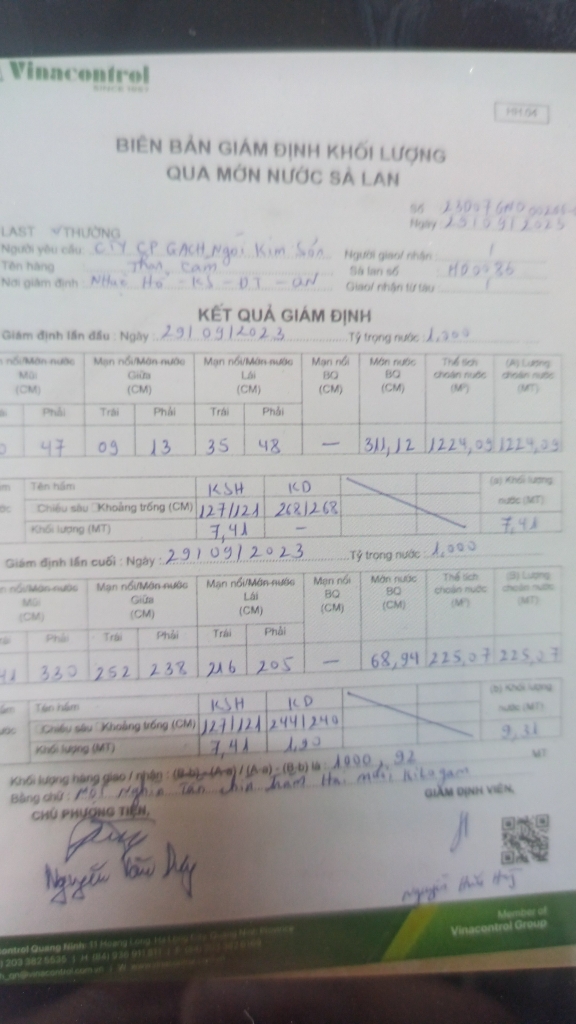 Vinacontrol
SINCE 1957
HH.04
BIÊN BẢN GIÁM ĐỊNH KHỐI LƯỢNG
QUA MỚN NƯỚC SÀ LAN
Số
Ngày 29/09/2023
LAST THƯỜNG
Người yêu cầu: CTY CP GẠCH Ngói Kim Sơn Người giao/ nhận /
Tên hàng Than Cám Sà lan số HD0086
Nơi giám định Nhuệ Hổ - KS - ĐT - QN Giao/ nhận từ tàu /
KẾT QUẢ GIÁM ĐỊNH
Giám định lần đầu : Ngày 29/09/2023 Tỷ trọng nước: 1,000
Mạn nổi/Mớn nước Mũi (CM) Mạn nổi/Mớn nước Giữa (CM) Mạn nổi/Mớn nước Lái (CM) Mạn nổi BQ (CM) Mớn nước BQ (CM) Thể tích choán nước (M³) (A) Lượng choán nước (MT)
Phải Trái Phải Trái Phải
47 09 13 35 48 — 311,12 1224,09 1224,09
Tên hầm KSH KD (a) Khối lượng nước (MT)
Chiều sâu Khoảng trống (CM) 127/121 268/268
Khối lượng (MT) 7,41 — 7,41
Giám định lần cuối : Ngày : 29/09/2023 Tỷ trọng nước : 1,000
Mạn nổi/Mớn nước Mũi (CM) Mạn nổi/Mớn nước Giữa (CM) Mạn nổi/Mớn nước Lái (CM) Mạn nổi BQ (CM) Mớn nước BQ (CM) Thể tích choán nước (M³) (B) Lượng choán nước (MT)
Phải Trái Phải Trái Phải
330 252 238 216 205 — 68,94 225,07 225,07
Tên hầm KSH KD (b) Khối lượng nước (MT)
Chiều sâu Khoảng trống (CM) 127/121 244/240
Khối lượng (MT) 7,41 1,90 9,31
Khối lượng hàng giao / nhận : (B-b) - (A-a) / (A-a) - (B-b) là : 1000,92 MT
Bằng chữ : Một nghìn tấn chín trăm Hai mươi kilogam
CHỦ PHƯƠNG TIỆN, GIÁM ĐỊNH VIÊN,
Nguyễn Văn Duy
Member of
Vinacontrol Group